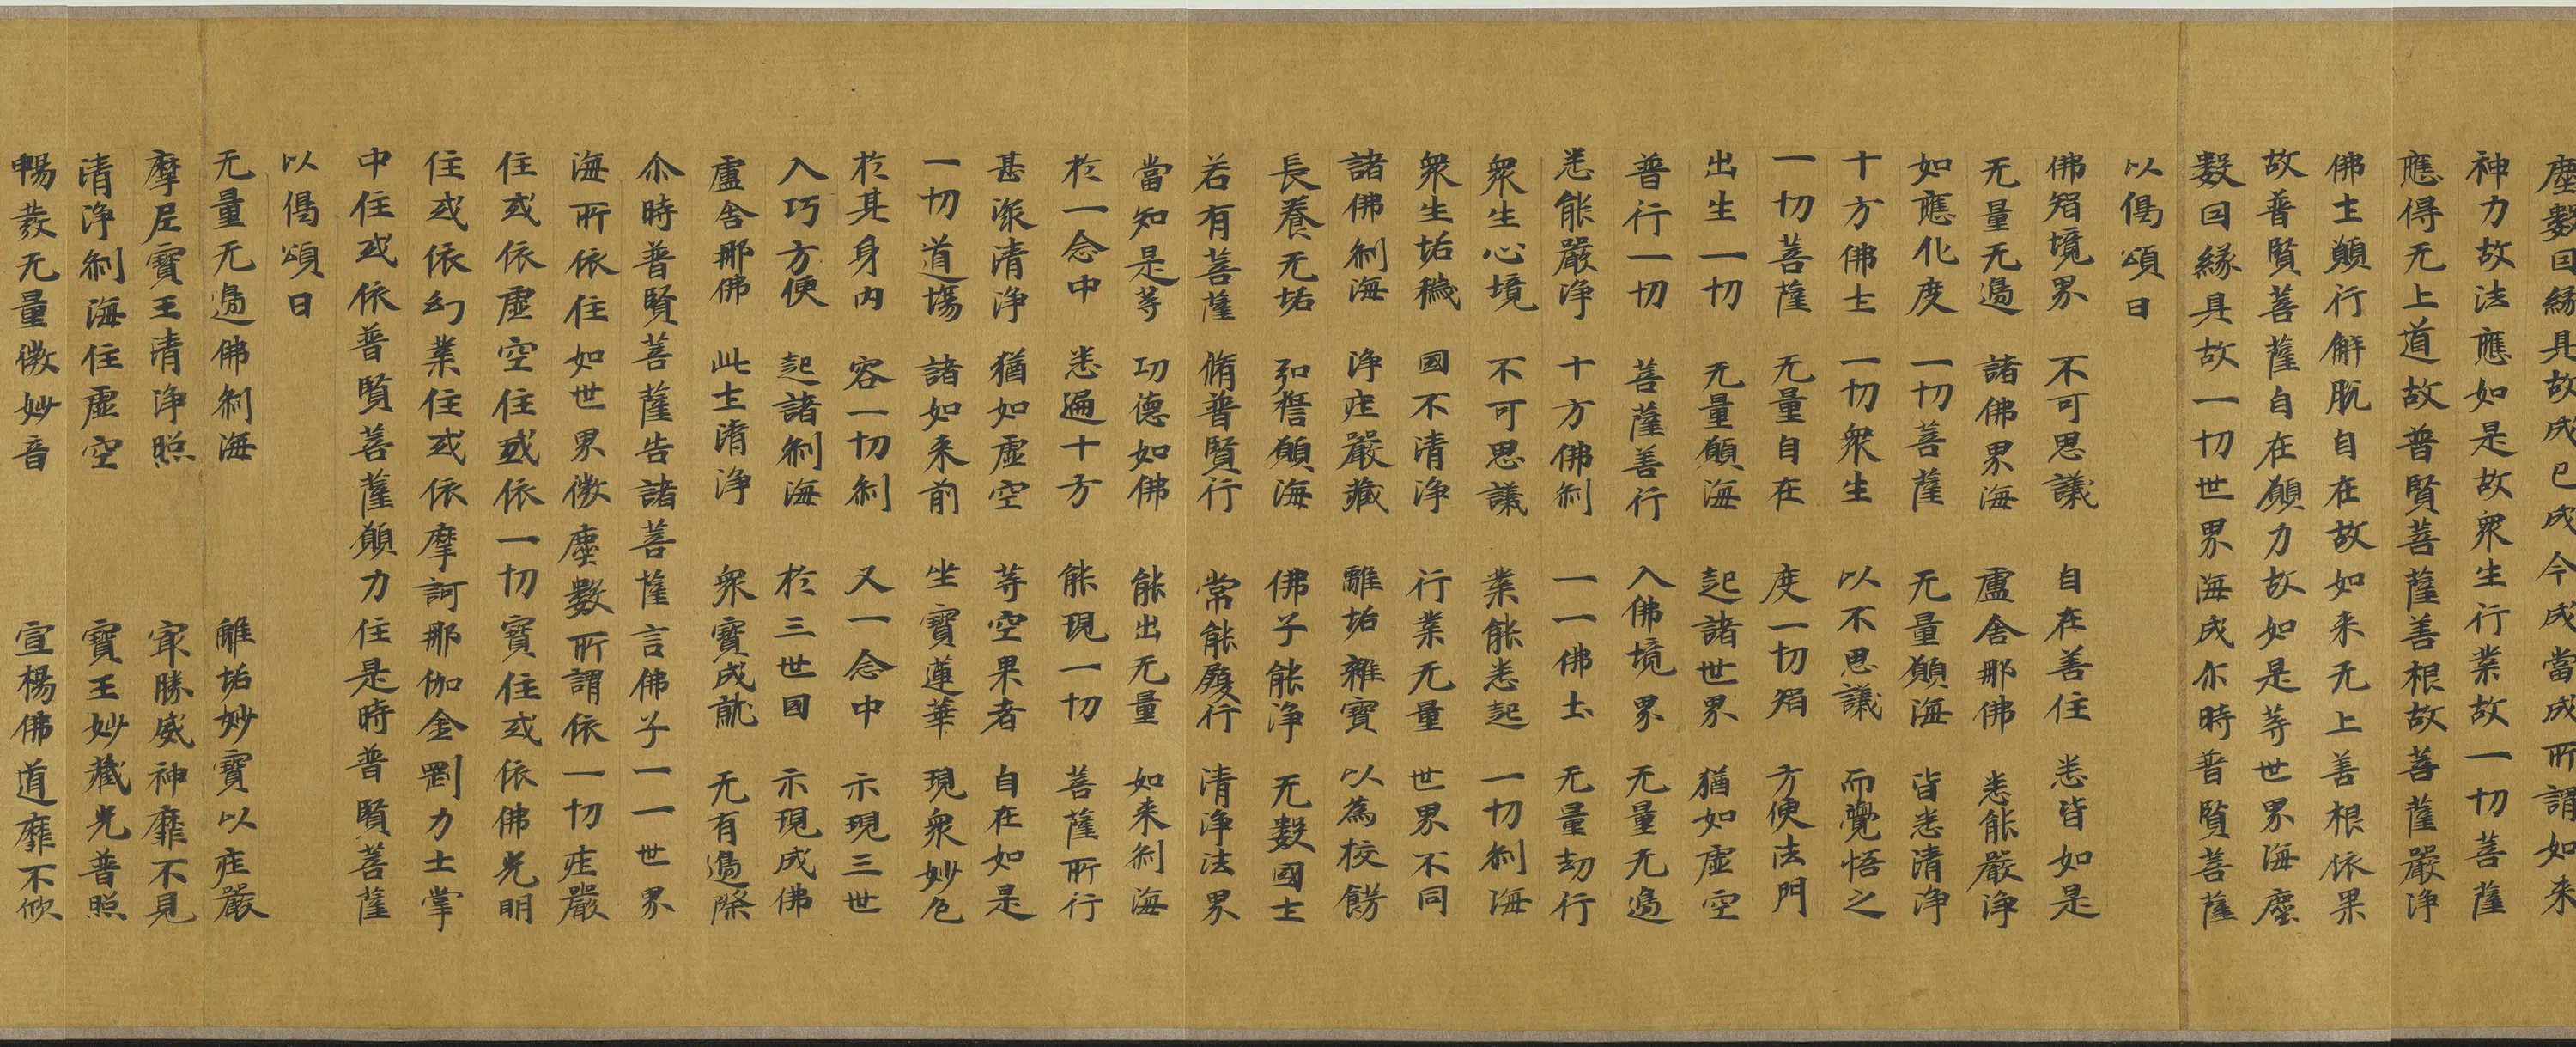 塵數因緣具故成已成今成當成所謂如来
神力故法應如是故衆生行業故一切菩薩
應得无上道故普賢菩薩善根故菩薩嚴淨
佛土願行解脫自在故如来无上善根依果
故普賢菩薩自在願力故如是等世界海塵
數因緣具故一切世界海成尒時普賢菩薩
以偈頌曰
佛智境界 不可思議 自在善住 悉皆如是
无量无邊 諸佛界海 盧舍那佛 悉能嚴淨
如應化度 一切菩薩 无量願海 皆悉清淨
十方佛土 一切衆生 以不思議 而覺悟之
一切菩薩 无量自在 度一切智 方便法門
出生一切 无量願海 起諸世界 猶如虛空
普行一切 菩薩善行 入佛境界 无量无邊
悉能嚴淨 十方佛刹 一一佛土 无量劫行
衆生心境 不可思議 業能悉起 一切刹海
衆生垢穢 國不清淨 行業无量 世界不同
諸佛刹海 淨莊嚴藏 離垢雜寶 以為校飾
長養无垢 弘誓願海 佛子能淨 无數國土
若有菩薩 脩普賢行 常能履行 清淨法界
當知是等 功德如佛 能出无量 如来刹海
於一念中 悉遍十方 能現一切 菩薩所行
甚深清淨 猶如虛空 等空果者 自在如是
一切道場 諸如来前 坐寶蓮華 現衆妙色
於其身內 容一切刹 又一念中 示現三世
入巧方便 起諸刹海 於三世國 示現成佛
盧舍那佛 此土清淨 衆寶成就 无有邊際
尒時普賢菩薩告諸菩薩言佛子一一世界
海所依住如世界微塵數所謂依一切莊嚴
住或依虛空住或依一切寶住或依佛光明
住或依幻業住或依摩訶那伽金剛力士掌
中住或依普賢菩薩願力住是時普賢菩薩
以偈頌曰
无量无邊佛刹海 離垢妙寶以莊嚴
摩尼寶王清淨照 冣勝威神靡不見
清淨刹海住虛空 寶王妙藏光普照
暢發无量微妙音 宣楊佛道靡不欣